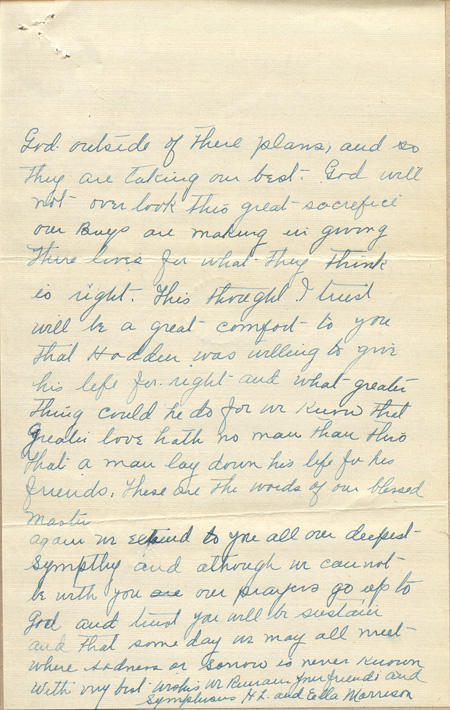 God outside of there plans, and so
they are taking our best. God will
not over look this great sacrefice
our Boys are making in giving
there lives for what they think
is right. This thought I trust
will be a great comfort to you
that Hadden was willing to give
his life for right and what greater
thing could he do for we know that
Greater love hath no man than this
that a man lay down his life for his
friends. These are the words of our blessed
Master
again we extend to you all our deepest
Sympthy and although we can not
be with you our prayers go up to
God and trust you will be sustain
and that some day we may all meet
where sadness or sorrow is never known
With my best wishes we Remain your friends and
Symphisers H. L. and Ella Morrison